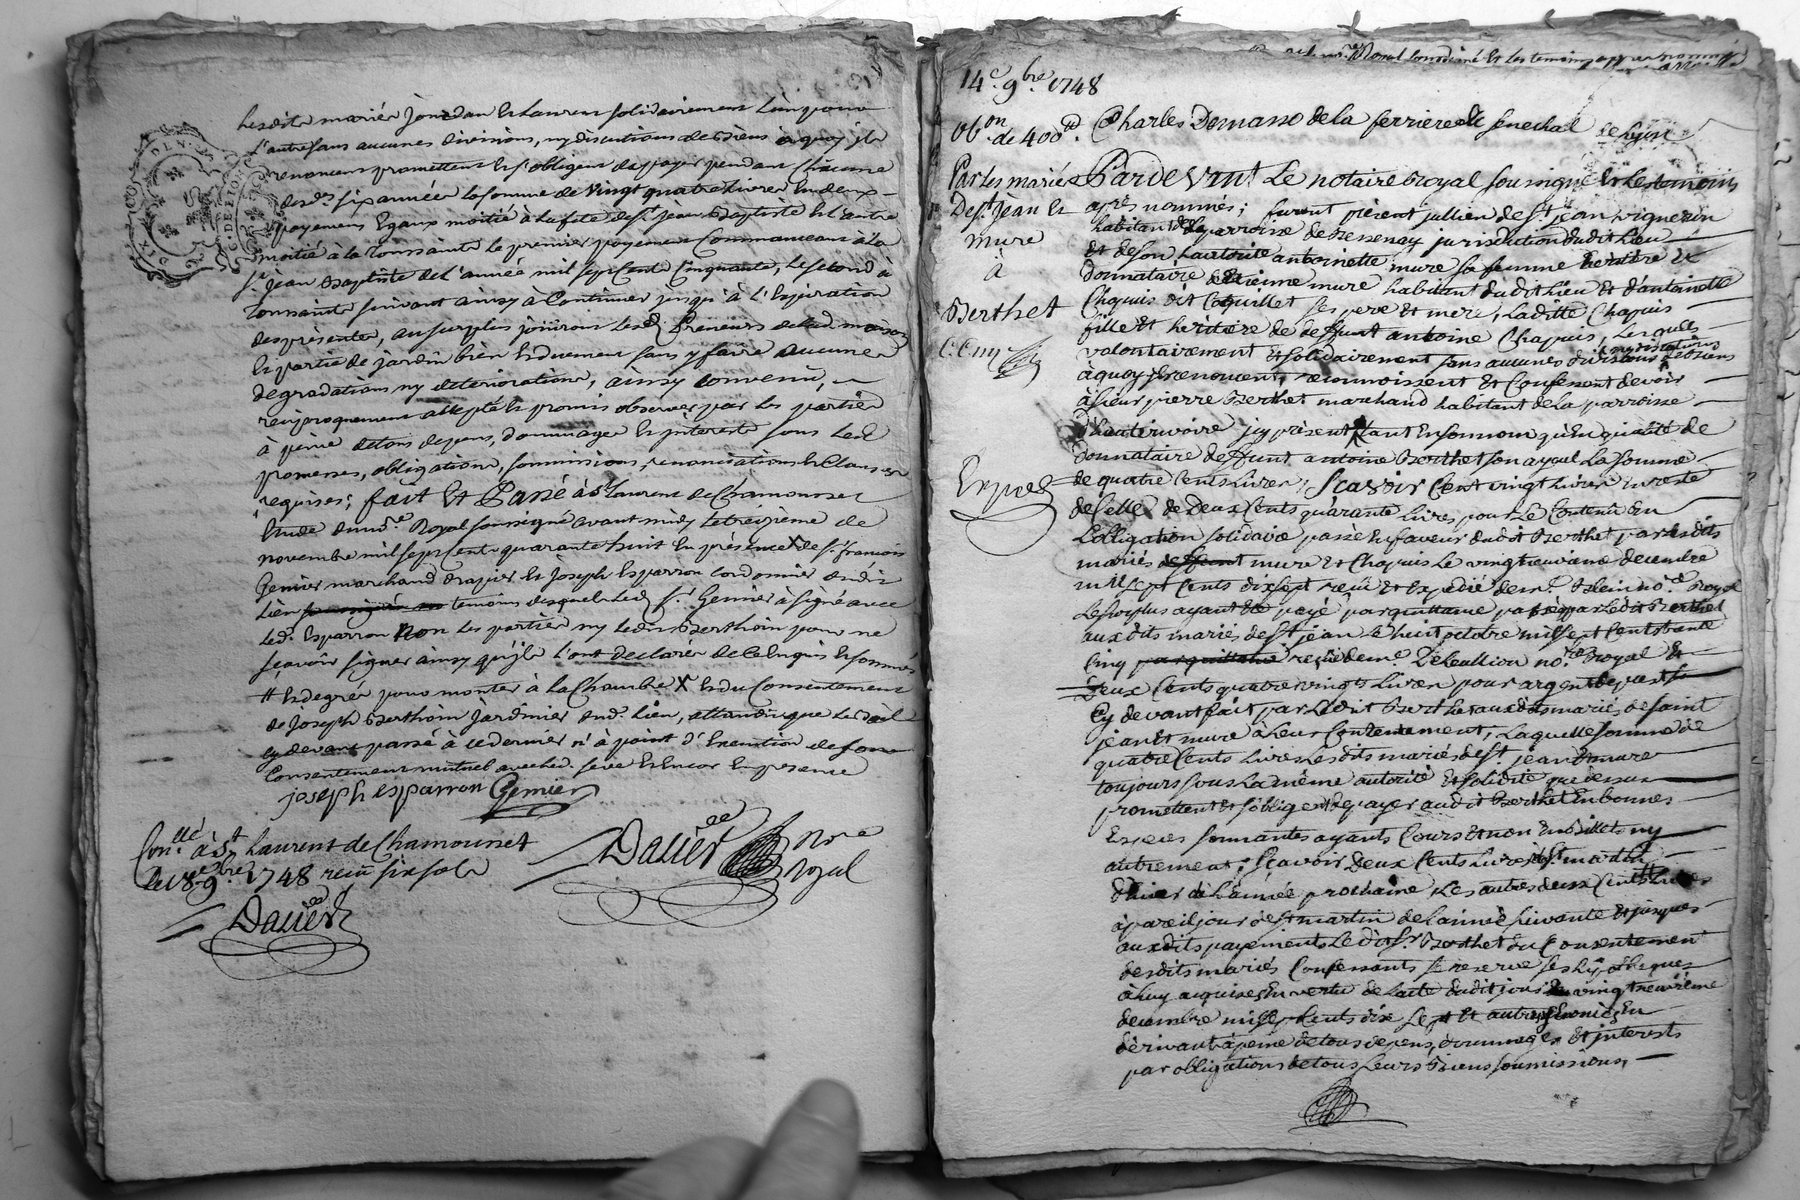 lesdits mariés Jourdan et Laurent solidairement l'un pour
l'autre sans aucunes divisions, ny discutions de biens à quoy ils
renoncent promettent et s'obligent de payer pendant chacune
desd. six années la somme de vingt quatre livres en deux
payements Egaux moitié à la fete de St jean Baptiste et l'autre
moitié à la Toussaints le premier payement Commenceant à la
St Jean Baptiste de l'année mil sept Cents Cinquante, le second à
Toussaints suivant ainsy à Continuer jusqu'à l'Expiration
des présentes, au surplus joüiront lesd. Preneurs de lad. maison
et partie de jardin bien et duement sans y faire aucunes
degradations, ny deteriorations, ainsy convenu,
reciproquement accepté et promis observer par les parties
à peine de tous depens, dommages et interets sous leurs
promesses, obligations, soumissions, renonciations et Clauses
requises; fait Et Passé à St Laurent de Chamousset
Etude dud. nre Royal soussigné avant midy le treizième de
novembre mil sept cents quarante huit En présence X de Sr. françois
Gemier marchand drapier et Joseph Esparron Cordonnier dudit
Lieu temoins desquels led. Sr. Gemier à signé avec
led. Esparron non les parties ny ledit Berthoin pour ne
sçavoir signer ainsy qu'ils l'ont declarer de ce Enquis et sommés
# Et degrés pour monter à la Chambre X Et du Consentement
de Joseph Berthoin Jardinier dud. Lieu, attendu que le bail
cy devant passé à ce dernier n'à point d'Execution de son
Consentement mutuel avec led. Et Encor En presence
joseph esparron Gemier
Con.llé à St Laurent de Chamousset
le 18 9bre 1748 reçu six sols
Dalier Nre
Royal
Dalier
14e 9bre 1748
Obon de 400#
Par les mariés
De St Jean Et
mure
à
Berthet
C. Cmy
Exped
Charles Demasso de la ferriere Senechal de Lyon
Par de Vant Le notaire Royal soussigné Et les temoins
apres nommés; furent présent jullien de St jean vigneron
habitant de la parroisse de Bessenay jurisdiction dudit Lieu
Et de son autorité antoinette mure sa femme heritière Et
donnataire d'Etienne mure habitant dudit lieu Et d'antoinette
Chapuis dit Coquillet ses pere et mere, Laditte Chapuis
fille Et heritière de deffunt antoine Chapuis, Lesquels
volontairement Et solidairement sans aucunes divisions ny discutions de biens
à quoy ils renoncent, reconnoissent Et Confessent devoir
à Sieur pierre Berthet marchand habitant de la parroisse
d'hauterivoire icy présent tant En son nom qu'En qualité de
donnataire de deffunt antoine Berthet son ayeul La somme
de quatre Cents Livres, Scavoir Cent vingt Livres de reste
de Celle de Deux Cents quarante Livres pour le Contenu En
L'obligation solidaire passé En faveur dudit Berthet par lesdits
mariés mure Et Chapuis Le vingt neuvième decembre
mil sept Cents dix sept reçu Et Expédié de me. no.re Royal
Le surplus ayant Eté payé par quittance passé par Ledit Berthet
auxdits mariés de St jean le huit octobre mil sept Cents trente
Cinq reçu de me. Dehuillion no.re Royal Et
Deux Cents quatre vingts Livres pour argent de prest
Cy devant fait par Ledit Berthet auxdits mariés de saint
jean Et mure à Leur Contentement, Laquelle somme de
quatre Cents Livres Lesdits mariés de St. jean Et mure
toujours sous La même autorité Et solidité que dessus
promettent Et s'obligent de payer audit Berthet En bonnes
Especes sonnantes ayants Cours Et non En billets ny
autrement; Sçavoir Deux Cents Livres à St. martin
d'hiver de L'année prochaine Les autres deux Cents Livres
à pareil jour de St martin de L'année suivante Et jusques
auxdits payements Le dit Sr Berthet du Consentement
desdits mariés Confessants se reserve ses hypotheques
à Luy acquises En vertu de L'acte dudit jour vingt neuvième
decembre mil sept Cents dix sept Et autres En
derivant à peine de tous depens, dommages Et interests
par obligations de tous Leurs biens soumissions,